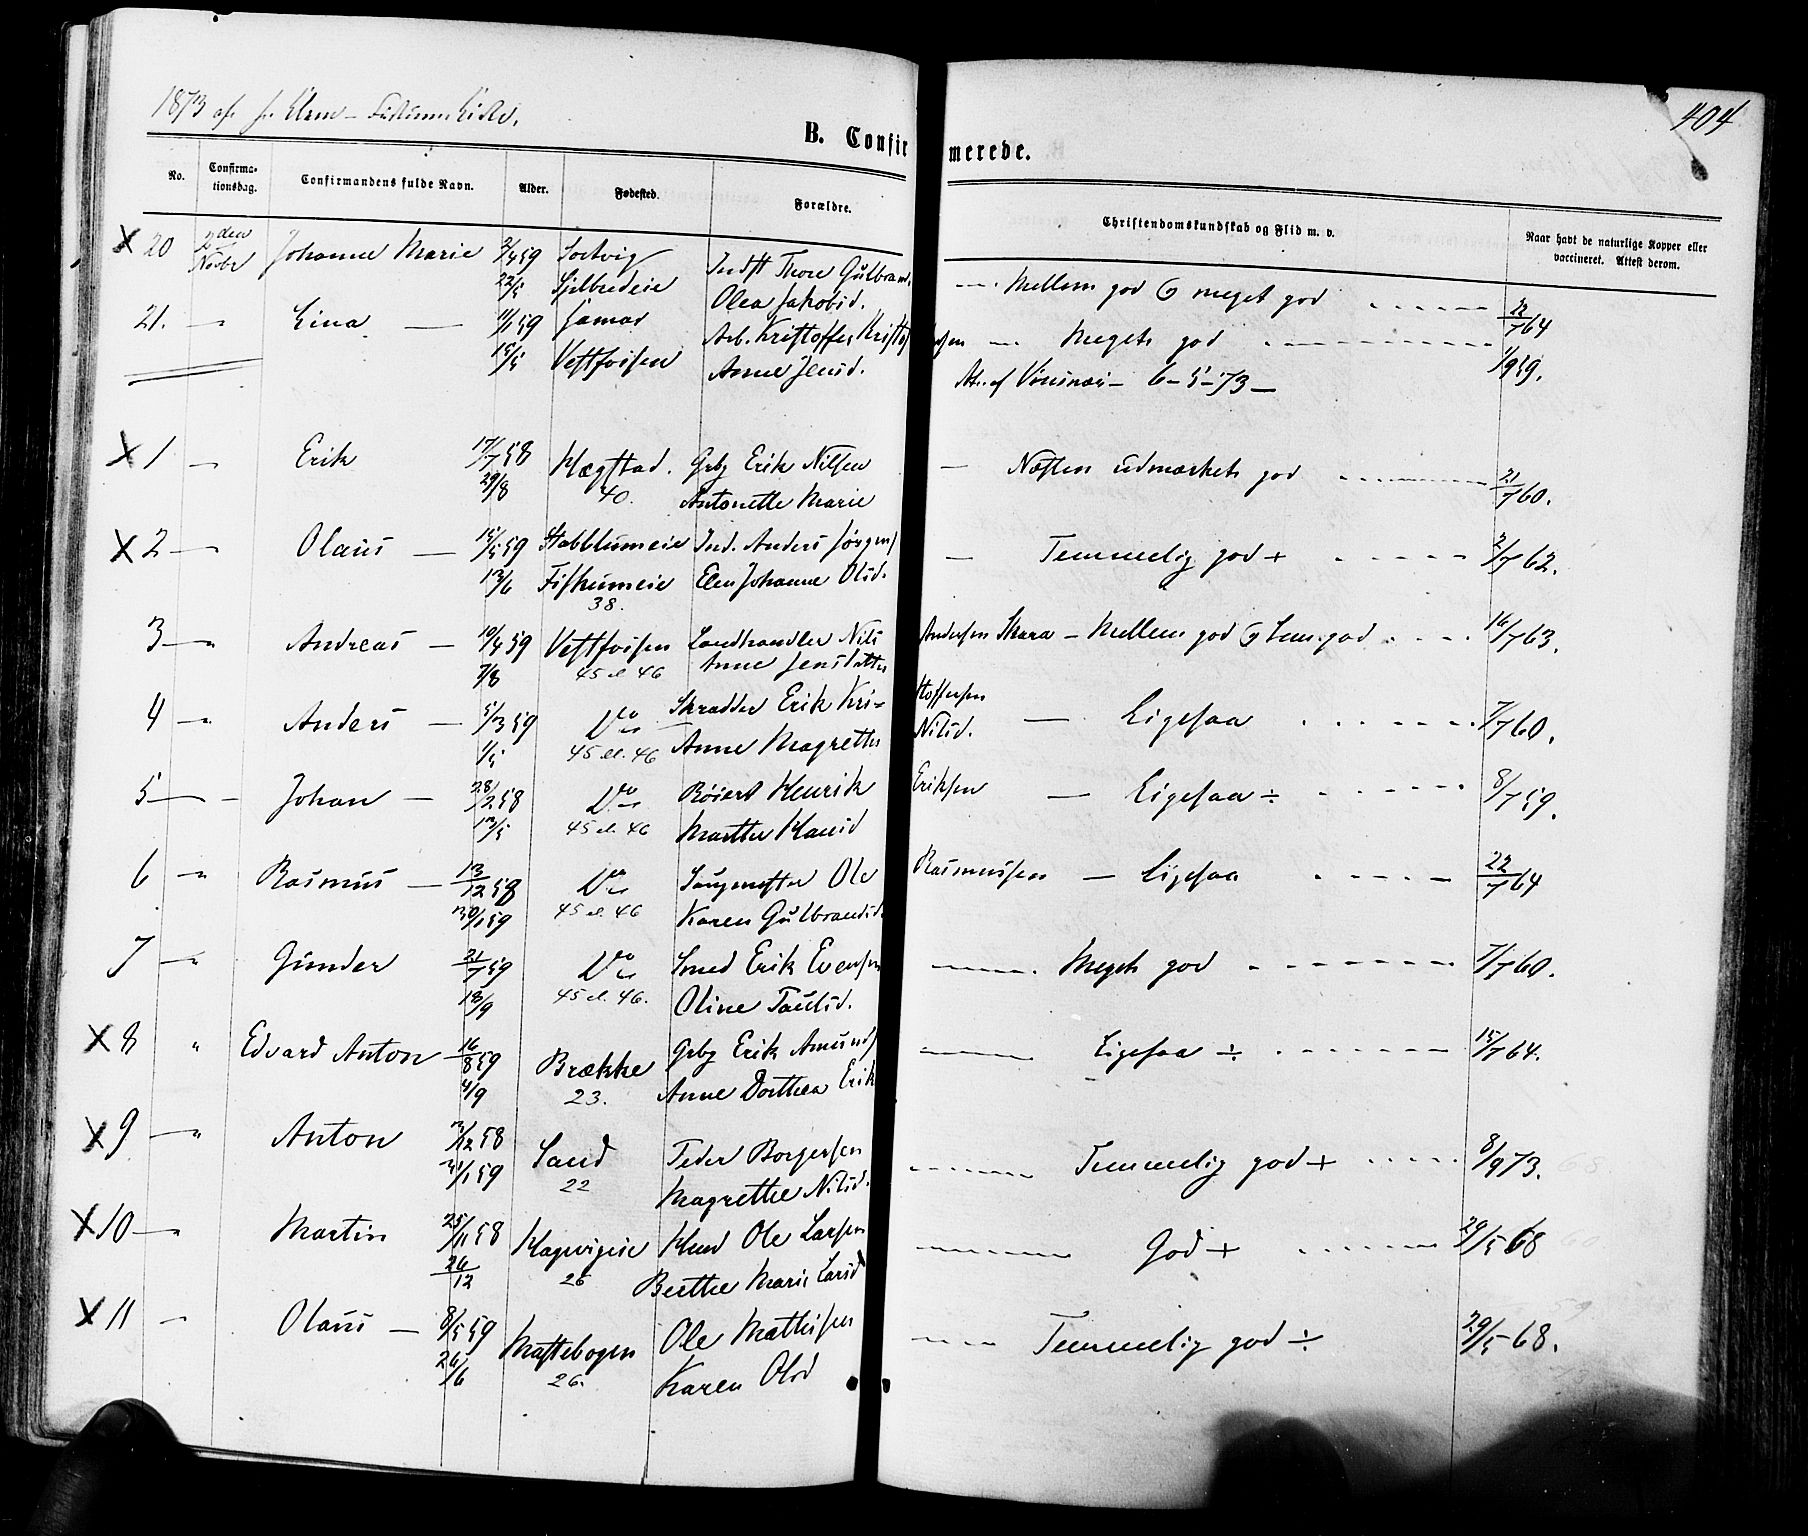 404
B. Confirmerede.
No.
Confirma-
tionsdag.
Confirmandens fulde Navn.
Alder.
Fødested.
Forældre.
Christendomskundskab og Flid m. v.
Naar havt de naturlige Kopper eller
vaccineret. Attest derom.
X 20 2den Novbr Johanne Marie 2/4 59 Indst Thore Gulbrand. — Mellem god & meget god 22/7 64
22/5 Olea Jakobsd.
21. — Lina — 11/1 59 Arb. Kristoffer Kristofersen — Meget god 1/9 59.
15/5 Vestfossen Anne Jensd. 6–5–73 —
X 1 — Erik 17/7 58 Hægstad. Grbg Erik Nilsen — Næsten udmærket god 21/7 60.
29/8 40. Antonette Marie
X 2 — Olaus — 15/5 59 Stabblumeie Ind. Anders Jørgens — Temmelig god + 2/7 62.
13/6 Fiskumeie Elen Johanne Olsd.
38.
3 — Andreas — 10/4 59 Vestfossen Landhandler Nils Andersen Skara — Mellem god & tem. god 16/7 63.
7/8 45 el 46 Anne Jensdatter
4 — Anders — 5/3 59 Do Skrædder Erik Kri-stoffersen — Ligesaa 7/7 60.
1/5 45 el. 46 Anne Magrethe Nilsd.
5 — Johan — 28/2 58 Do Henrik Eriksen — Ligesaa ÷ 8/7 59.
13/5 45 el. 46 Marthe Hansd
6 — Rasmus — 13/12 58 Do Ole Rasmussen — Ligesaa 22/7 64
30/1 59 45 el. 46 Karen Gulbrandsd.
7 — Gunder 21/7 59 Do Smed Erik Evensen — Meget god 7/7 60.
18/9 45 el. 46. Oline Paulsd.
X 8 " Edvard Anton 16/8 59 Brække Grbg Erik Amunds — Ligesaa ÷ 15/7 64.
4/9 23. Anne Dorthea Erik
X 9 — Anton 3/12 58 Sand Peder Borgersen — Temmelig god + 8/9 73.
31/1 59 22 Magrethe Nilsd.
X 10 — Martin 25/11 58 Hagevigeie Ole Larsen — God + 29/5 68
26/12 26 Berthe Marie Larsd
X 11 — Olaus — 8/5 59 Mastebogen Ole Mathisen — Temmelig god ÷ 29/5 68.
26/6 26. Karen Olsd